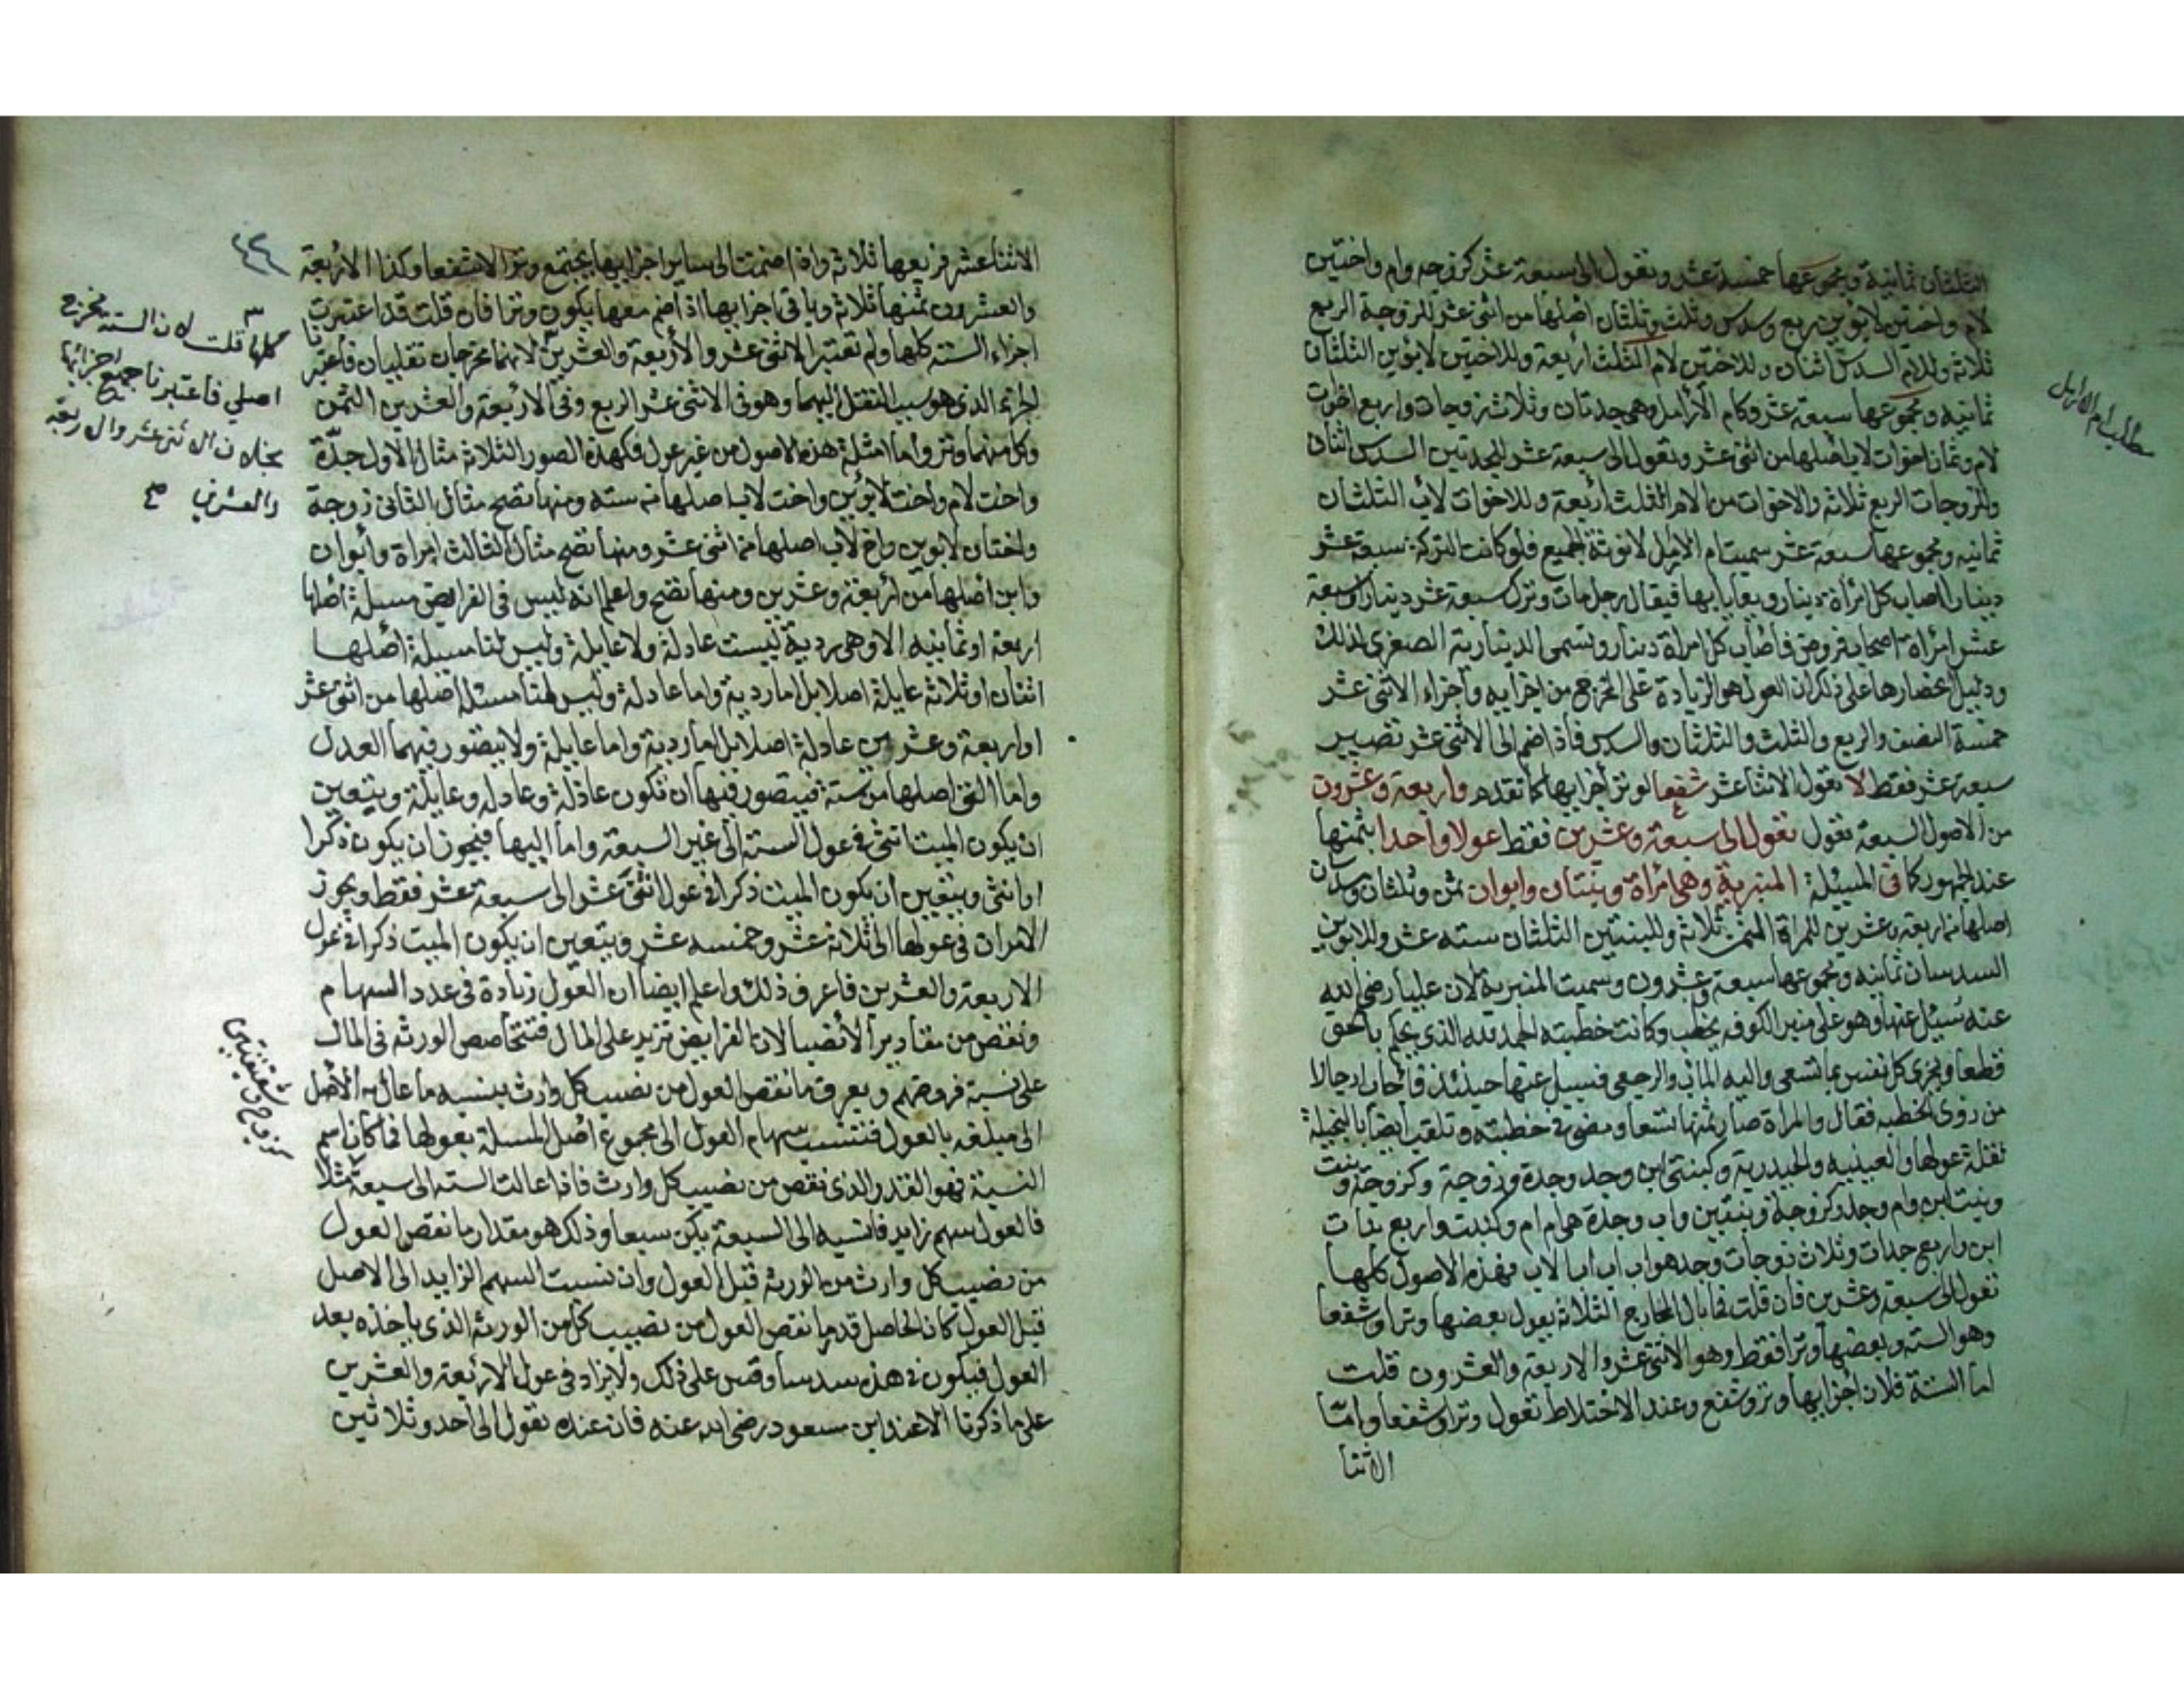 الثلثان ثمانية ومجموعها خمسة عشر وتعول الى سبعة عشر كزوجه وام واختين
لام واختين لابوين ربع وسدس وثلث وثلثان اصلها من اثنى عشر للزوجة الربع
ثلاثه وللام السدس اثنان وللاختين لام الثلث اربعة وللاختين لابوين الثلثان
ثمانيه ومجموعها سبعة عشر وكام الأرامل وهى جدتان وثلاث زوجات واربع اخوات
لام وثمان اخوات لاب اصلها من اثنى عشر وتعول الى سبعة عشر للجدتين السدس اثنان
وللزوجات الربع ثلاثه والاخوات من الام الثلث اربعة وللاخوات لأب الثلثان
ثمانيه ومجموعها سبعة عشر سميت ام الارامل لانوثة الجميع فلو كانت التركة سبعة عشر
دينارا لاصاب كل امرأة دينار ويعايا بها فيقال رجل مات وترك سبعة عشر دينارا وسبعة
عشر امرأة اصحاب فروض فاصاب كل امراة دينار وتسمى الدينارية الصغرى لذلك
ودليل انحصارها على ذلك ان العول هو الزيادة على المخرج من اجزايه واجزاء الاثنى عشر
خمسة النصف والربع والثلث والثلثان والسدس فاذا ضم الى الاثنى عشر تصير
سبعة عشر فقط لا تعول الاثنا عشر شفعا لوتر أجزايها كما تقدم واربعة وعشرون
من الاصول السبعة تعول تعول الى سبعة وعشرين فقط عولا واحدا بثمنها
عند الجمهور كما فى المسئلة المنبرية وهى امراة وبنتان وابوان ثمن وثلثان وسدسان
اصلها من اربعة وعشرين للمراة الثمن ثلاثة وللبنتين الثلثان سته عشر وللابوين
السدسان ثمانيه ومجموعها سبعة وعشرون وسميت المنبرية لان عليا رضى الله
عنه سُئل عنها وهو على منبر الكوفه يخطب وكانت خطبته الحمد لله الذى يحكم بالحق
قطعا ويجزى كل نفس بما تسعى واليه المآب والرجعى فسيل عنها حينئذ فاجاب ارتجالا
من روى الخطبه فقال والمراة صار ثمنها تسعا ومضى فى خطبته وتلقب ايضا بالبخيلة
لقلة عولها والحيدرية وكبنتى ابن وجد وجدة وزوجة وكزوجة وبنت
وبنت ابن وام وجد وكزوجة وبنتين واب وجدة هى ام ام وكبنت واربع بنات
ابن واربع جدات وثلاث زوجات وجد هو اب اب اب لاب فهذه الاصول كلها
تعول الى سبعة وعشرين فان قلت فما بال المخارج الثلاثة يعول بعضها وترا وشفعا
وهو الستة وبعضها وترا فقط وهو الاثنى عشر والاربعة والعشرون قلت
اما الستة فلان اجزايها وتر وشفع وعند الاختلاط تعول وترا وشفعا وامّا
الاثنا
مطلب ام الارامل
الاثنا عشر فربعها ثلاثه واذا ضمت الى ساير اجزايها يجتمع وترا لا شفعا وكذا الاربعة
والعشرون ثمنها ثلاثه وباقى اجزايها اذا ضم معها يكون وترا فان قلت قد اعتبرت
اجزاء الستة كلها ولم تعتبر الاثنى عشر والأربعة والعشرين لانهما مخرجان
الجزء الذى هو سبب النقل اليهما وهو فى الاثنى عشر الربع وفى الاربعة والعشرين الثمن
وكل منهما وتر وأما امثلة هذه الاصول من غير عول فكهذه الصور الثلاثة مثال الاول جدّة
واخت لام واخت لابوين واخت لاب اصلها من سته ومنها تصح مثال الثانى زوجة
واختان لابوين واخ لاب اصلها من اثنى عشر ومنها تصح مثال الثالث امراة وأبوان
وابن اصلها من أربعة وعشرين ومنها تصح واعلم انه ليس فى الفرايض مسيلة اصلها
اربعة او ثمانيه الا وهى ردية ليست عادلة ولا عايلة وليس لنا مسيلة اصلها
اثنان او ثلاثه عايلة اصلا بل اما ردية واما عادلة وليس لنا مسئلة اصلها من اثنى عشر
او اربعة وعشرين عادلة اصلا بل اما ردية واما عايلة ولا يتصور فيهما العدل
واما التى اصلها من ستة فيتصور فيها ان تكون عاذلة وعادله وعايلة ويتعين
ان يكون الميت انثى فى عول الستة الى غير السبعة واما اليها فيجوز ان يكون ذكرا
او انثى ويتعين ان يكون الميت ذكرا فى عول اثنى عشر الى سبعة عشر فقط ويجوز
الامران فى عولها الى ثلاثة عشر وخمسه عشر ويتعين ان يكون الميت ذكرا فى عول
الاربعة والعشرين فاعرف ذلك واعلم ايضا ان العول زيادة فى عدد السهام
ونقص من مقادير الأنصبا لان الفرايض تزيد على المال فتتحاصص الورثه فى المال
على نسبة فروضهم ويعرف ما نقص العول من نصيب كل وارث بنسبه ما عال به الأصل
الى مبلغه بالعول فتنسب سهام العول الى مجموع اصل المسلة بعولها فما كان اسم
النسبة فهو القدر الذى نقص من نصيب كل وارث فاذا عالت الستة الى سبعة مثلا
فالعول بسهم زايد فانسبه الى السبعة يكن سبعا وذلك هو مقدار ما نقص العول
من نصيب كل وارث من الورثة قبل العول وان نسبت السهم الزايد الى الاصل
قبل العول كان الحاصل قدر ما نقص العول من نصيب كل من الورثه الذى ياخذه بعد
العول فيكون فى هذه سدسا وقس على ذلك ولا يزاد فى عول الاربعة والعشرين
على ما ذكرنا الا عند ابن مسعود رضى الله عنه فان عنده تعول الى احد وثلاثين
كلها قلت لان الستة مخرج
اصلي فاعتبرنا جميع اجزائها
بخلاف الاثنى عشر والاربعة
والعشرين صح
كزوج وشقيقتين